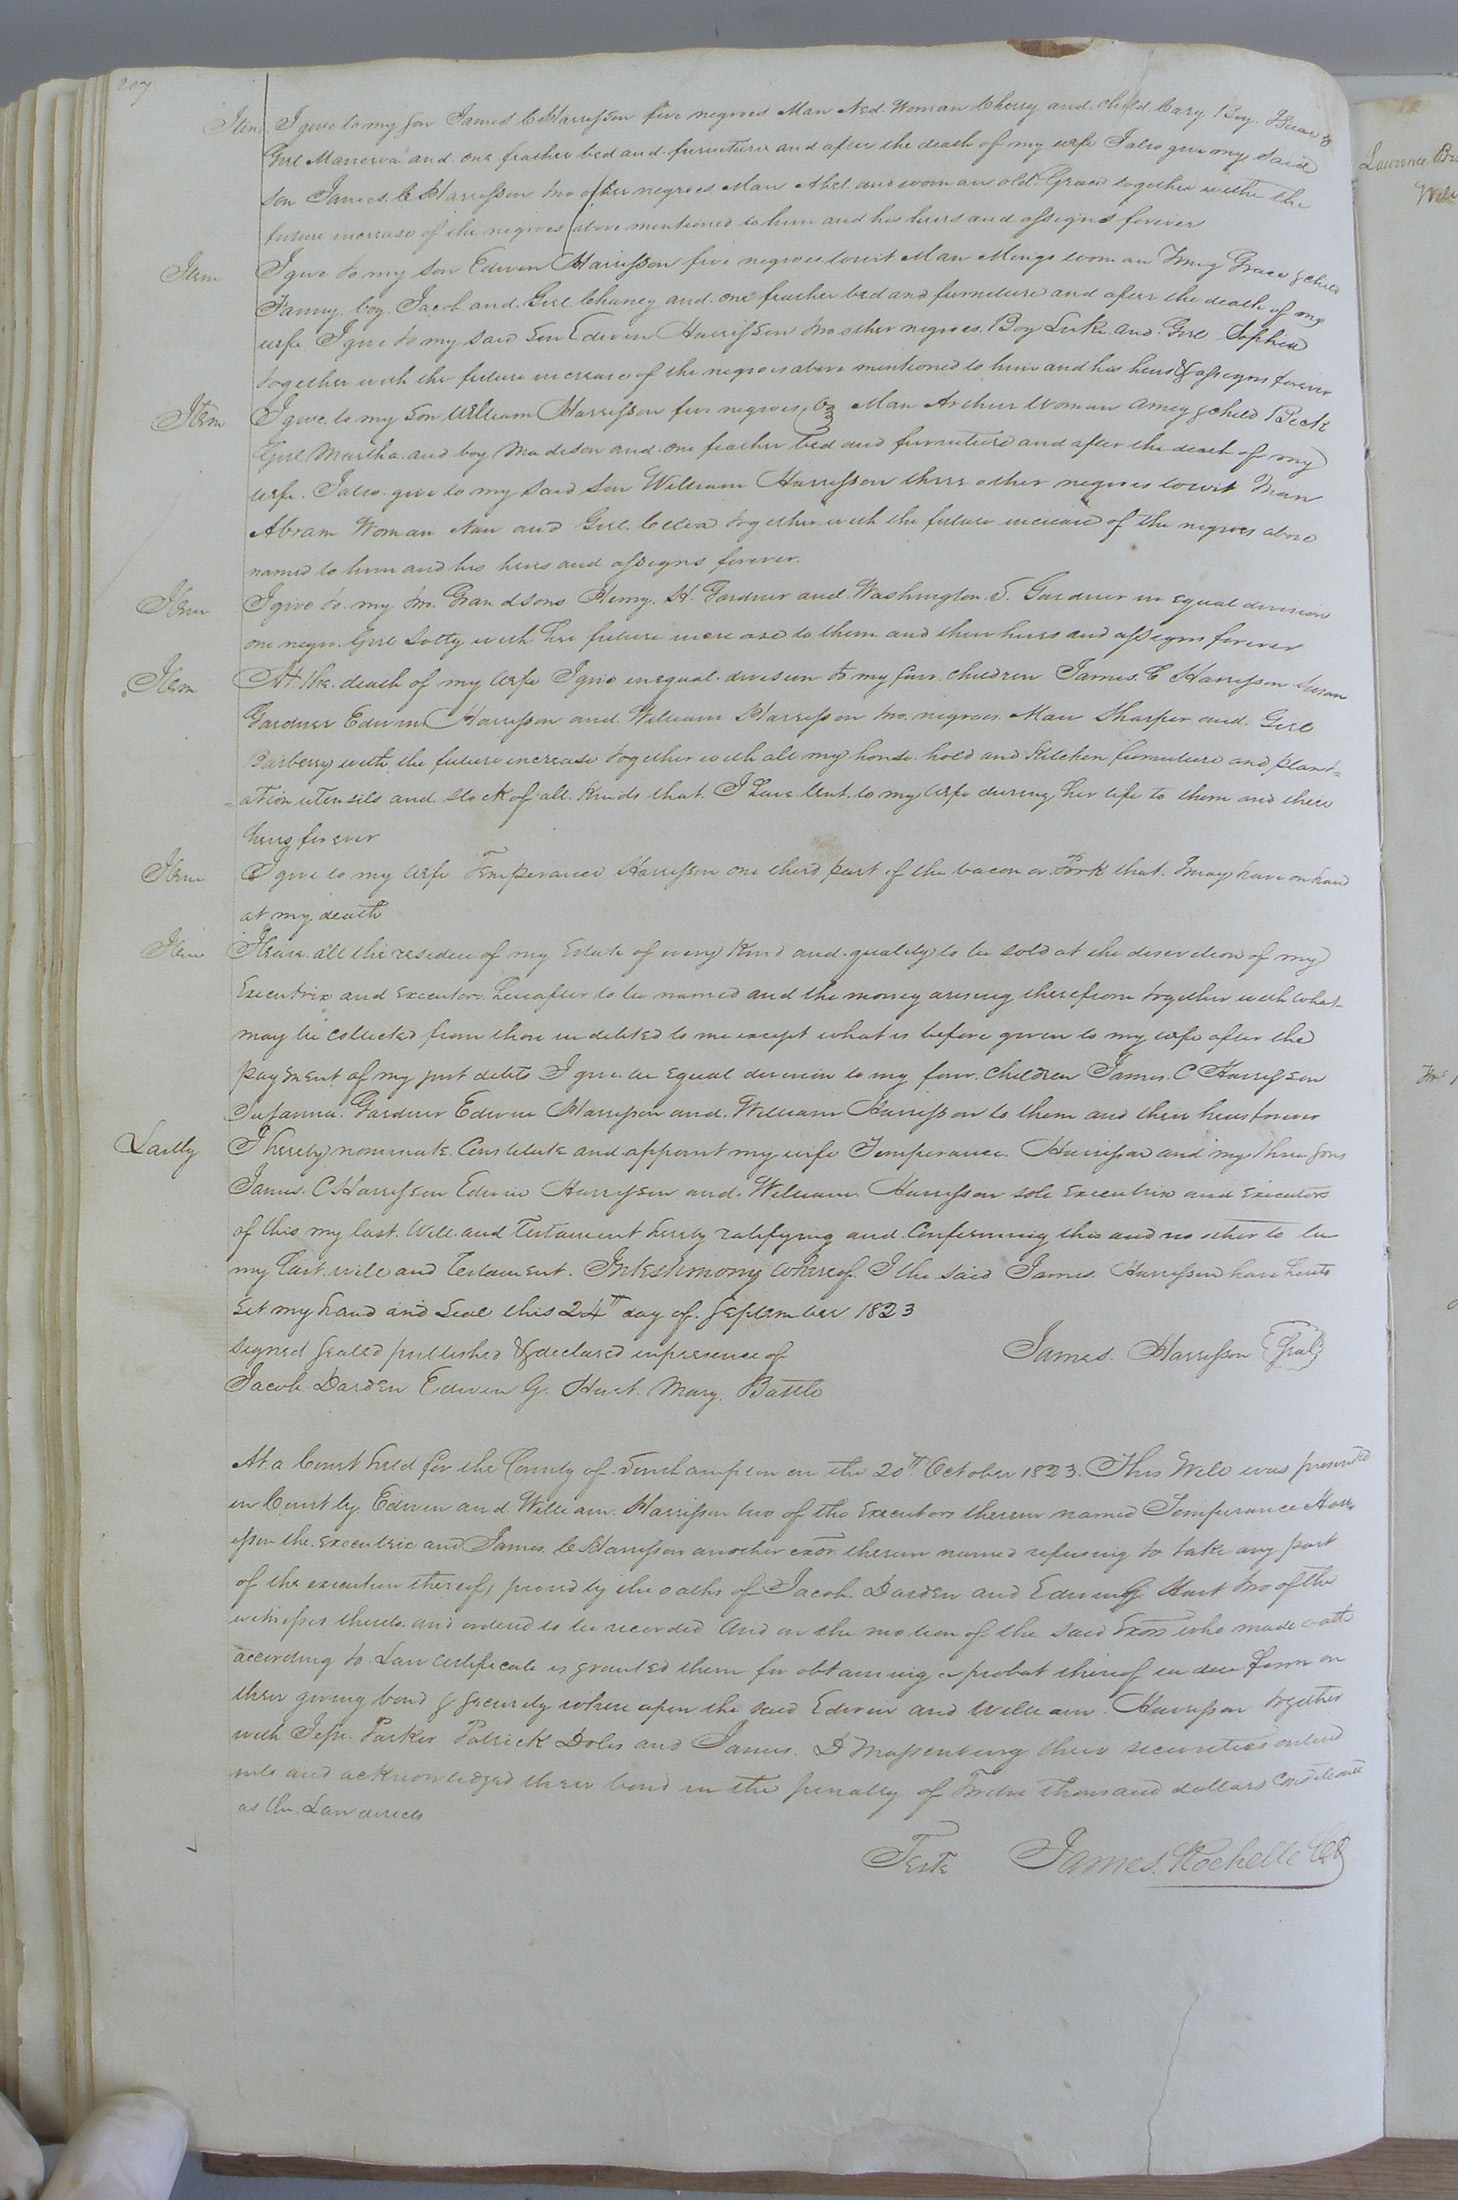 207
Item I give to my son James C Harrisson five negroes Man Ned. Woman Cherry and. child Cary Boy. Isaac &
Girl Manerva and one feather bed and furniture and after the death of my wife I also give my said
son James. C Harrisson two other negroes Man Abel and woman old Grace together with the
future increase of the negroes above mentioned to him and his heirs and assigns forever
Item I give to my son Edwin Harrisson five negroes towit Man Mingo woman Young Grace & child
Fanny boy Jacob and Girl Chaney and one feather bed and furniture and after the death of my
wife I give to my said son Edwin Harrisson two other negroes. Boy Luke and Girl Sophia
together with the future increase of the negroes above mentioned to him and his heirs & assigns forever
Item I give to my son William Harrisson five negroes, Man Arthur Woman Amey & child Beck
Girl Martha and boy Madison and one feather bed and furniture and after the death of my
wife. I also give to my said son William Harrisson three other negroes towit Man
Abram Woman Nan and Girl Celia together with the future increase of the negroes above
named to him and his heirs and assigns forever.
Item I give to my two Grandsons Henry. H. Gardner and Washington. S. Gardner in equal division
one negro Girl Lotty with her future increase to them and their heirs and assigns forever
Item At the death of my wife I give in equal division to my four children James. C Harrisson Susan
Gardner Edwin Harrisson and William Harrisson two negroes Man Sharper and Girl
Barberry with the future increase together with all my house hold and Kitchen furniture and plant=
=ation utensils and stock of all Kinds that I have lent to my wife during her life to them and their
heirs forever
Item I give to my wife Temperance Harrisson one third part of the bacon or Pork that I may have on hand
at my death
Item I leave all the residue of my Estate of every Kind and quality to be sold at the discretion of my
Executrix and Executors hereafter to be named and the money arising therefrom together with what
may be collected from those indebted to me except what is before given to my wife after the
payment of my just debts I give in equal division to my four children James. C Harrisson
Susanna Gardner Edwin Harrisson and William Harrisson to them and their heirs forever
Lastly I hereby nominate Constitute and appoint my wife Temperance Harrisson and my three sons
James. C Harrisson Edwin Harrisson and William Harrisson sole executrix and executors
of this my last Will and Testament hereby ratifying and Confirming this and no other to be
my last will and Testament. In testimony whereof I the said James Harrisson have hereto
set my hand and Seal this 24th day of September 1823
signed sealed published & declared in presence of James. Harrisson (Seal)
Jacob Darden Edwin G. Hart Mary Battle
At a Court held for the County of Southampton on the 20th October 1823. This Will was presented
in Court by Edwin and William Harrisson two of the Executors therein named Temperance Harr-
isson the executrix and James. C Harrisson another exor. therein named refusing to take any part
of the execution thereof, proved by the oaths of Jacob. Darden and Edwin G Hart two of the
witnesses thereto and ordered to be recorded And on the motion of the said Exors who made oath
according to Law certificate is granted them for obtaining a probat thereof in due form on
their giving bond & security where upon the said Edwin and William Harrisson together
with Parker Patrick Doles and James. D Massenburg their securities entered
into and acknowledged their bond in the penalty of Twelve thousand dollars Conditioned
as the Law directs
Teste James. Rochelle
Lawrence
Will